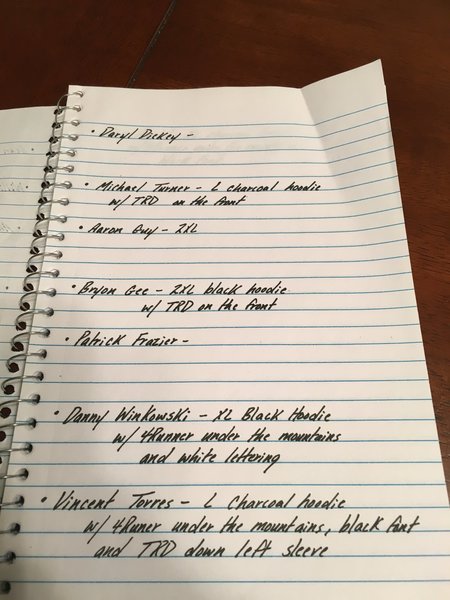 • Daryl Dickey -
• Michael Turner - L charcoal hoodie
w/ TRD on the front
• Aaron Guy - 2XL
• Bryon Gee - 2XL black hoodie
w/ TRD on the front
• Patrick Frazier -
• Danny Winkowski - XL Black Hoodie
w/ 4Runner under the mountains
and white lettering
• Vincent Torres - L Charcoal hoodie
w/ 4Runer under the mountains, black font
and TRD down left sleeve